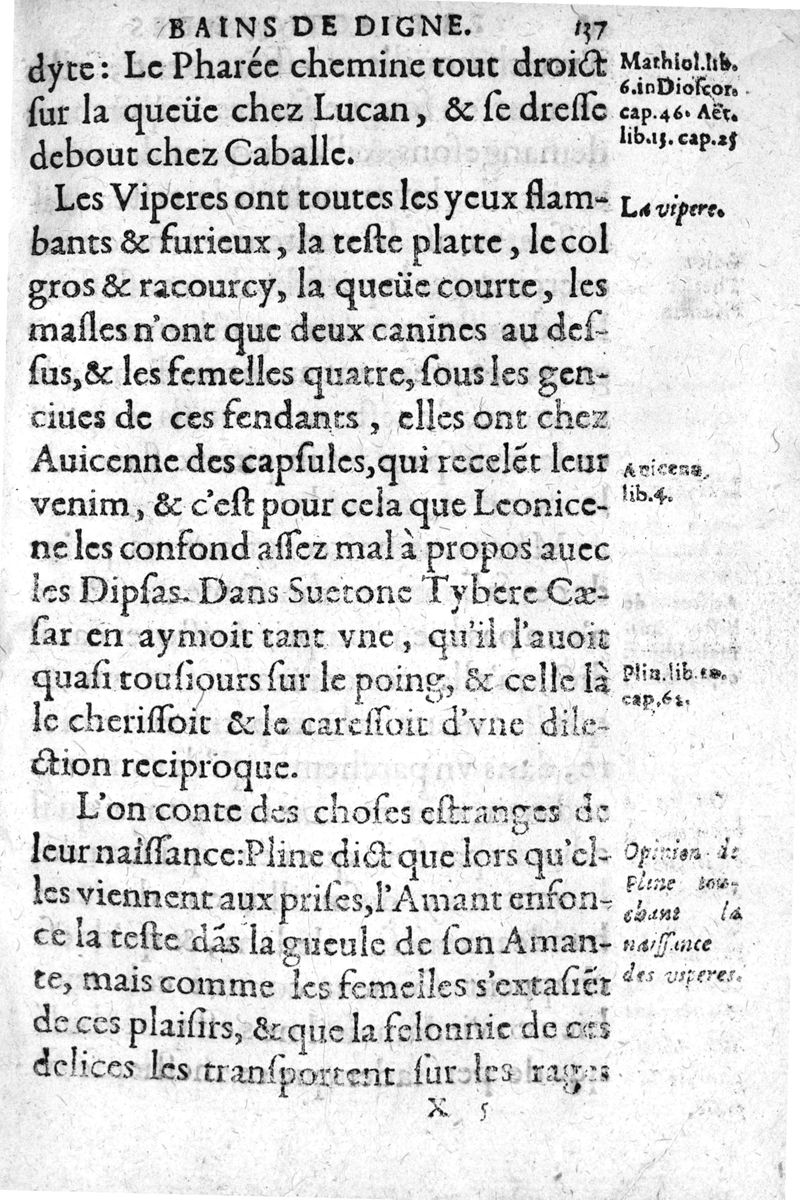 BAINS DE DIGNE. 137
dyte: Le Pharée chemine tout droict
ſur la queüe chez Lucan, & ſe dreſſe
debout chez Caballe.
Les Viperes ont toutes les yeux flam-
bants & furieux, la teſte platte, le col
gros & racourcy, la queüe courte, les
maſles n'ont que deux canines au deſ-
ſus, & les femelles quatre, ſous les gen-
ciues de ces fendants, elles ont chez
Auicenne des capſules, qui recelẽt leur
venim, & c'eſt pour cela que Leonice-
ne les confond aſſez mal à propos auec
les Dipſas. Dans Suetone Tybere Cæ-
ſar en aymoit tant vne, qu'il l'auoit
quaſi touſiours ſur le poing, & celle là
le cheriſſoit & le careſſoit d'vne dile-
ction reciproque.
L'on conte des choſes eſtranges de
leur naiſſance: Pline dict que lors qu'el-
les viennent aux priſes, l'Amant enfon-
ce la teſte dãs la gueule de ſon Aman-
te, mais comme les femelles s'extaſiẽt
de ces plaiſirs, & que la felonnie de ces
delices les tranſportent ſur les rages
X 5
Mathiol. lib.
6. in Dioſcor.
cap. 46. Aët.
lib. 13. cap. 25
La vipere.
Auicena,
lib. 4.
Plin. lib. 10.
cap. 62.
Opinion de
Pline tou-
chant la
naiſſance
des viperes.